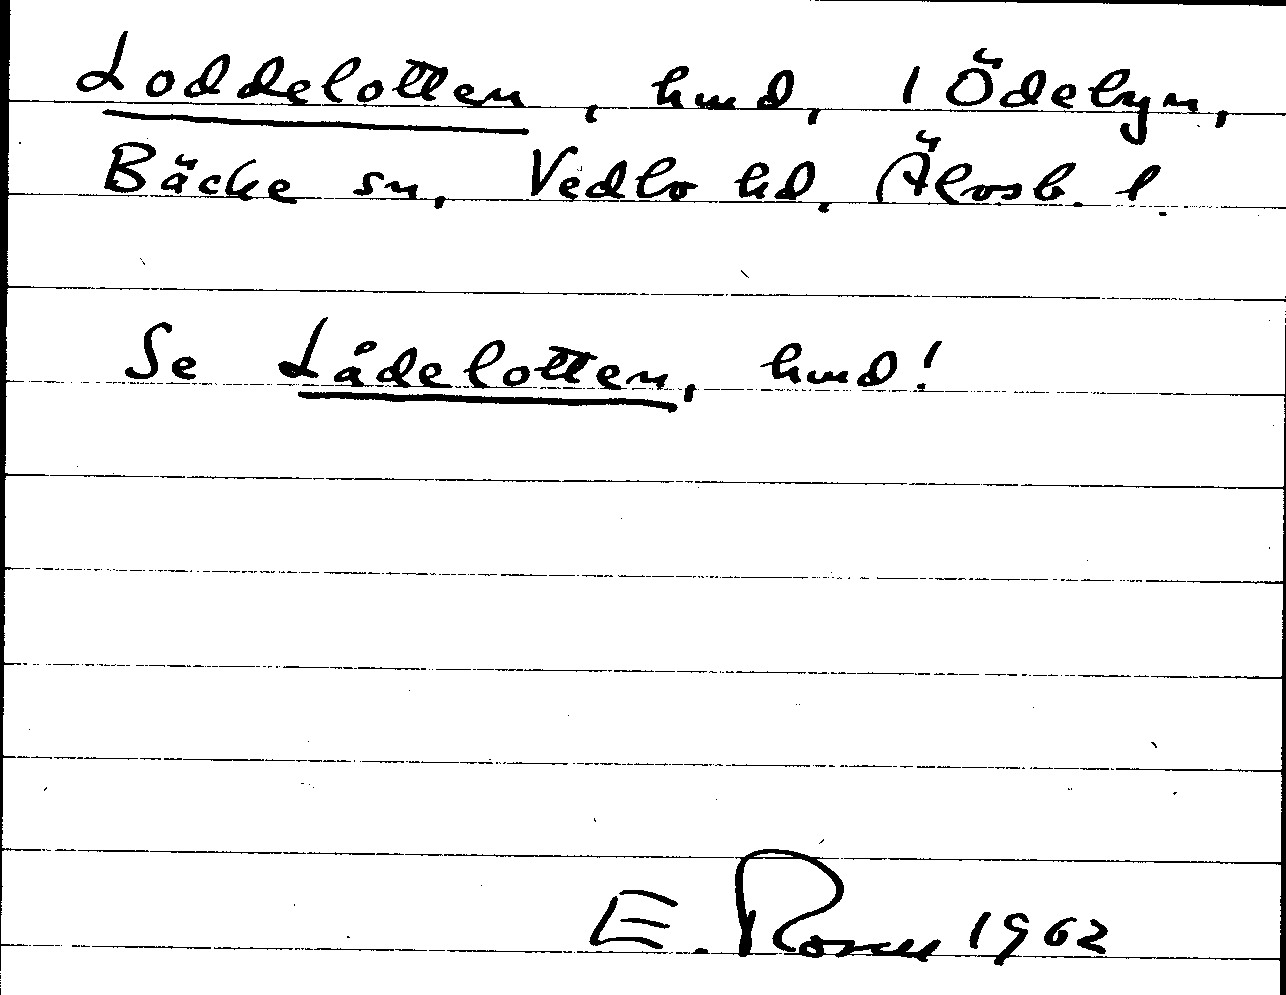 Loddelotten, hmd, i Ödebyn,
Bäcke sn, Vedbo hd. Älvsb. l.
Se Lådelotten, hmd!
E. Rosell 1962